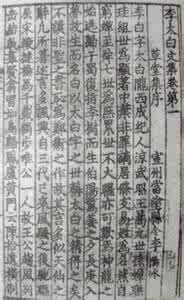 李太白文集卷第一
草堂集序
宣州當塗縣令李陽冰
李白字太白隴西成紀人涼武昭王暠九世孫蟬聯
珪組世為顯著中葉非罪謫居條支易姓為名然自
窮蟬至舜七世為庶累世不大曜亦可歎焉神龍之
始逃歸于蜀復指李樹而生伯陽驚姜之夕長庚入
夢故生而名白以太白字之世稱太白之精得之矣
不讀非聖之書恥為鄭衛之作故其言多似天仙之
辭凡所著述言多諷興自三代已來風騷之後馳驅
屈宋鞭撻揚馬千載獨步唯公一人故王公趨風列
岳結軌群賢翕習如鳥歸鳳盧黃門云陳拾遺橫制